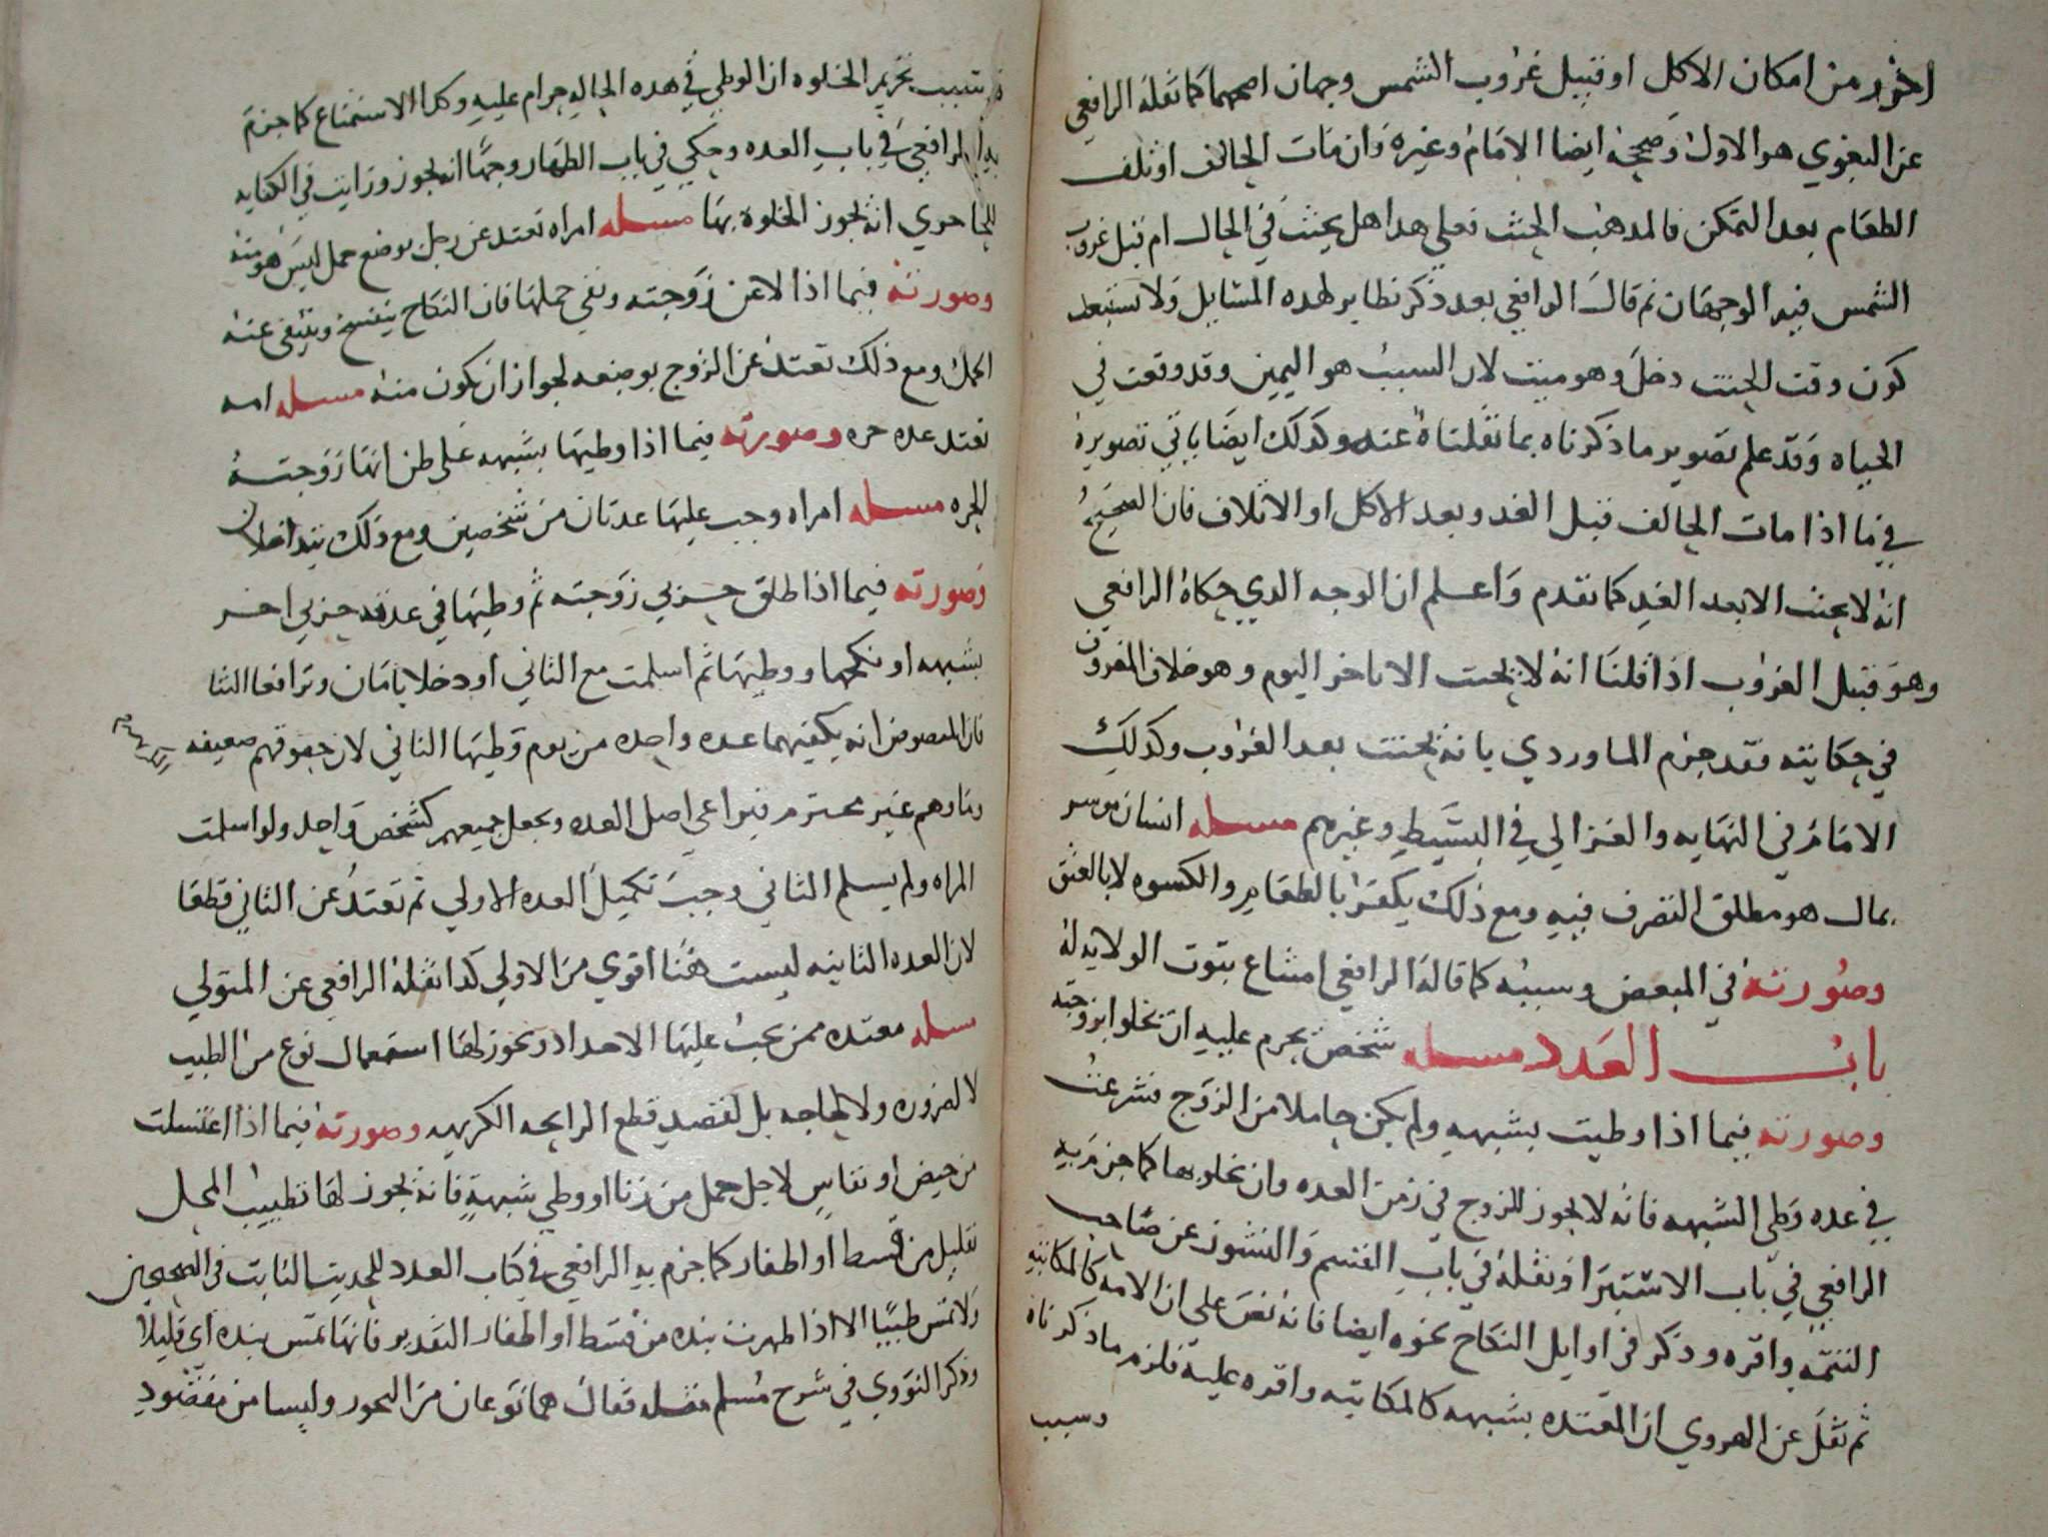 اخر من امكان الاكل او قبيل غروب الشمس وجهان اصحهما كما نقله الرافعي
عن البغوي هو الاول وصححه ايضا الامام وغيره وان مات الحالف او تلف
الطعام بعد التمكن فالمذهب الحنث فعلي هدا هل يحنث في الحال ام قبل غروب
الشمس فيه الوجهان ثم قال الرافعي بعد ذكر نظاير لهده المسايل ولا تستبعد
كون وقت الحنث دخل وهو ميت لان السبب هو اليمين وقد وقعت في
الحياه وقد علم تصوير ما ذكرناه بما نقلناه عنه وكدلك ايضا ياتي تصويره
فيما اذا مات الحالف قبل الغد وبعد الاكل او الاتلاف فان الصحيح
انه لا يحنث الا بعد الغد كما تقدم واعلم ان الوجه الدي حكاه الرافعي
وهو قبل الغروب اذا قلنا انه لا يحنث الا باخر اليوم وهو خلاف المعروف
في حكايته فقد جزم الماوردي بانه يحنث بعد الغروب وكدلك
الامام في النهايه والغزالي في البسيط وغيرهم مسله انسان موسر
بمال هو مطلق التصرف فيه ومع ذلك يكفر بالطعام والكسوه لا بالعتق
وصورته في المبعض وسببه كما قاله الرافعي امتناع ثبوت الولايه له
باب العدد مسله شخص يحرم عليه ان يخلو بزوجته
وصورته فيما اذا وطيت بشبهه ولم يكن حاملا من الزوج فشرعت
في عده وطي الشبهه فانه لا يجوز للزوج في زمن العده وان يخلو بها كما جزم به
الرافعي في باب الاستبرا ونقله في باب القسم والنشوز عن صاحب
التتمه واقره وذكر في اوايل النكاح نحوه ايضا فانه نص علي ان الامه كالمكاتبه
ثم نقل عن الهروي ان المعتده بشبهه كالمكاتبه واقره عليه فلزم ما ذكرناه
وسبب
تسبب تحريم الخلوه ان الوطي في هده الحاله حرام عليه وكدا الاستمتاع كما جزم
به الرافعي في باب العده وحكي في باب الظهار وجها انه يجوز ورايت في الكفايه
للجاحوي انه يجوز الخلوة بها مسله امراه تعتد عن رجل بوضع حمل ليس هو منه
وصورته فيما اذا لاعن زوجته ونفي حملها فان النكاح ينفسخ وينتفي عنه
الحمل ومع ذلك تعتد عن الزوج بوضعه لجواز ان يكون منه مسله امه
تعتد عده حره وصورته فيما اذا وطيها بشبهه علي ظن انها زوجته
الحره مسله امراه وجب عليها عدتان من شخصين ومع ذلك يتداخلان
وصورته فيما اذا طلق حربي زوجته ثم وطيها في عدته حربي اخر
بشبهه او نكحها ووطيها ثم اسلمت مع الثاني او دخلا بامان وترافعا الينا
فان المنصوص انه يكفيهما عده واحده من يوم وطيها الثاني لان حقوقهم ضعيفه
وماوهم غير محترم فيراعي اصل العده ويجعل جميعهم كشخص واحد ولو اسلمت
المراه ولم يسلم الثاني وجب تكميل العده الاولي ثم تعتد عن الثاني قطعا
لان العده الثانيه ليست هنا اقوي من الاولي كدا نقله الرافعي عن المتولي
مسله معتده ممن يجب عليها الاحداد ويجوز لها استعمال نوع من الطيب
لا لضروره ولا لحاجه بل لقصد قطع الرايحه الكريهه وصورته فيما اذا اغتسلت
من حيض او نفاس لاجل حمل من زنا او وطي شبهة فانه يجوز لها تطييب المحل
بقليل من قسط او اظفار كما جزم به الرافعي في كتاب العدد للحديث الثابت في الصحيحين
ولا تمس طيبا الا اذا طهرت نبده من قسط او اظفار التقدير فانها تمس نبده اي قليلا
وذكر النووي في شرح مسلم مثله فقال هما نوعان من البخور وليسا من مقصود